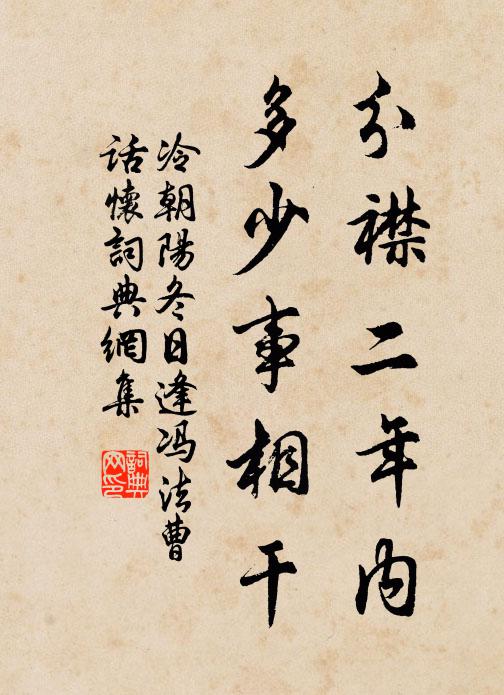 分襟二年内
多少事相干
冷朝陽冬日逢冯法曹
话懷詞典網集
詞典网印